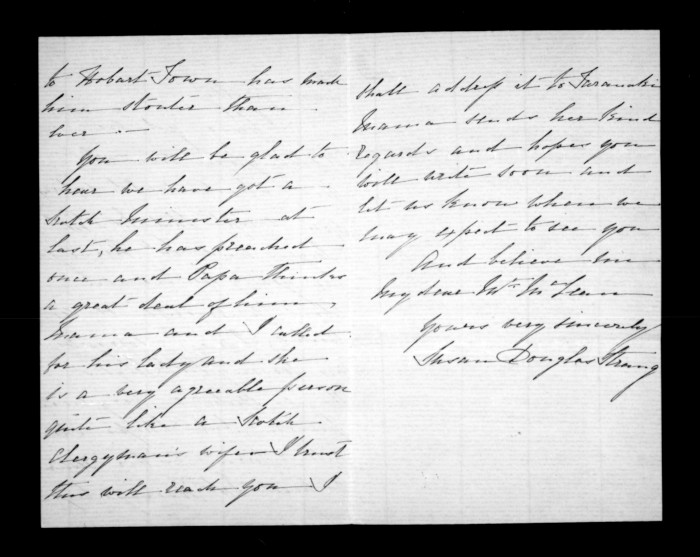 to Hobart Town has made
him stouter than
ever. —
You will be glad to
hear we have got a
Scotch Minister at
last, he has preached
once and Papa thinks
a great deal of him,
Mama and I called
for his lady and she
is a very agreeable person
quite like a Scotch
Clergyman's wife. I trust
this will reach you I
shall address it to Taranaki
Mama sends her kind
regards and hopes you
will write soon and
let us know when we
may expect to see you
And believe me
My dear Mr McLean
Yours very sincerely
Susan Douglas Strang